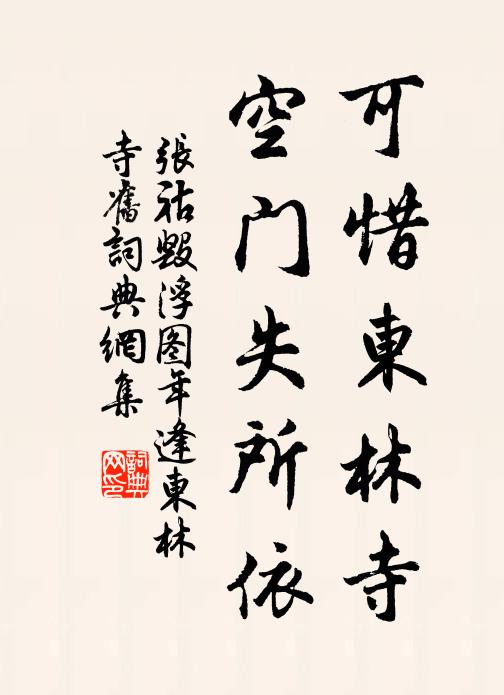 可惜東林寺
空門失所依
張祜毀浮图年逢東林
寺舊詞典網集
詞典网印